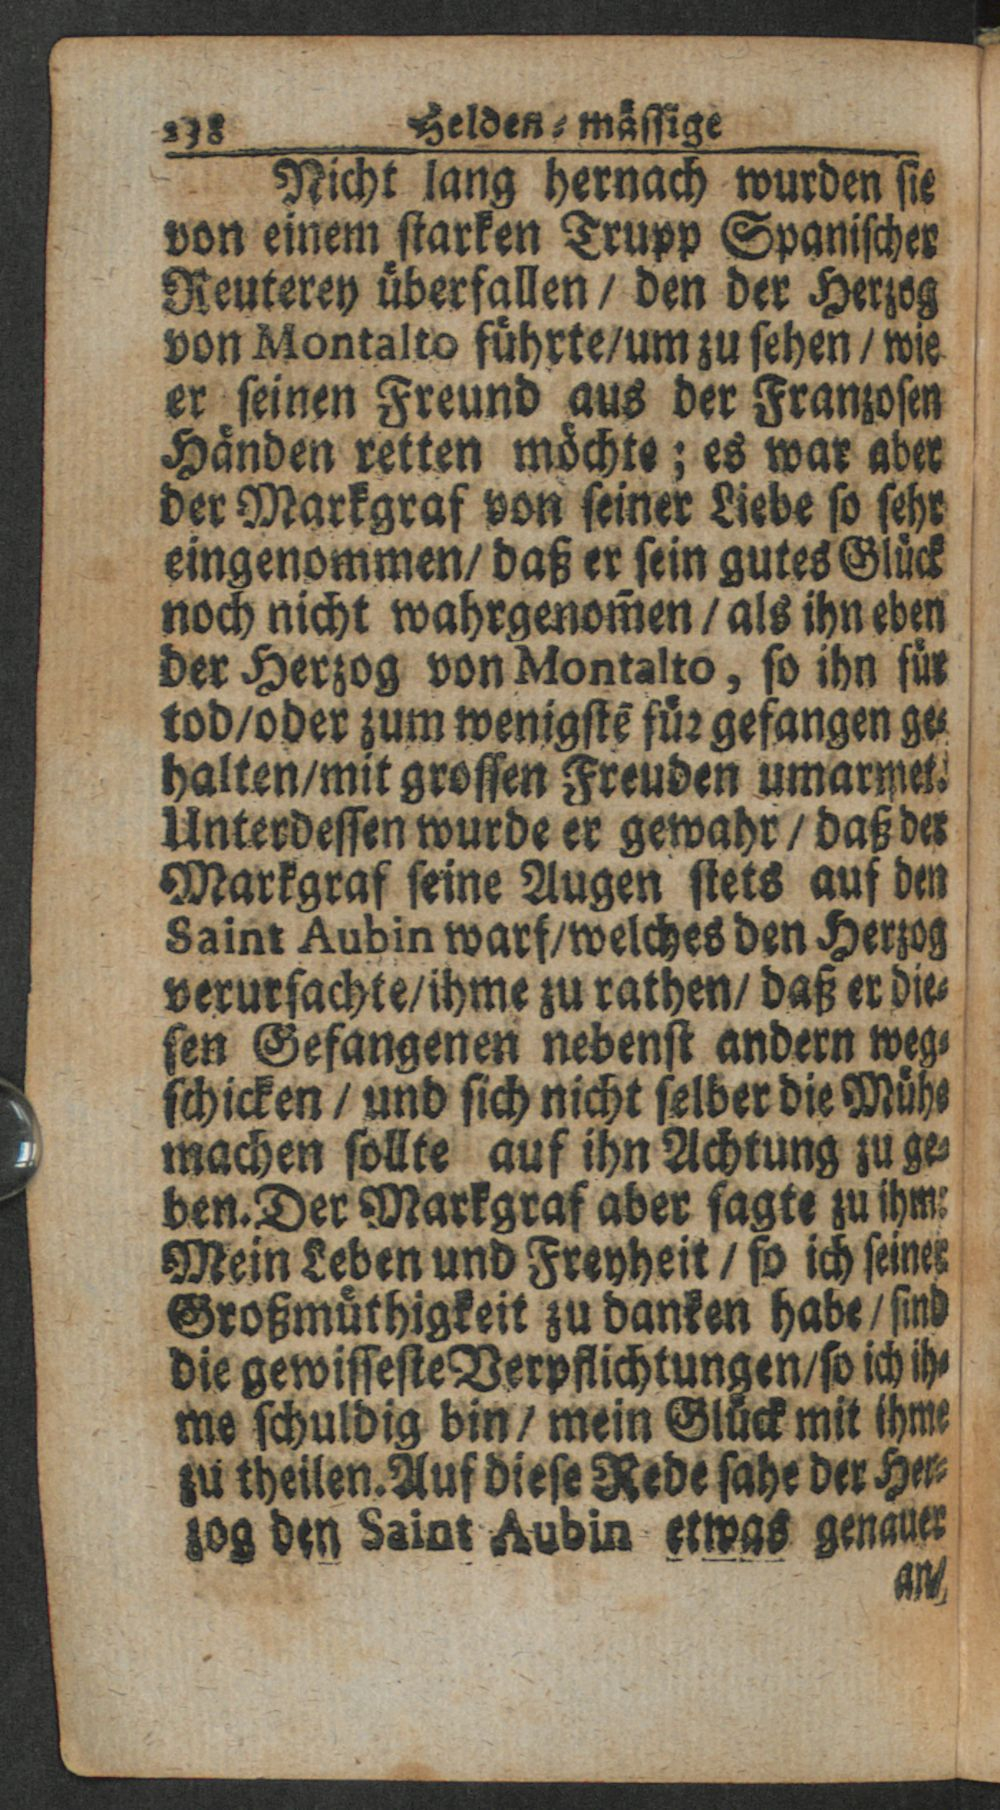 238 Helden-mässige
Nicht lang hernach wurden sie
von einem starken Trupp Spanischer
Reuterey überfallen / den der Herzog
von Montalto führte/um zu sehen / wie
er seinen Freund aus der Franzosen
Händen retten möchte ; es war aber
der Markgraf von seiner Liebe so sehr
eingenommen/ daß er sein gutes Glück
noch nicht wahrgenom̃en / als ihn eben
der Herzog von Montalto, so ihn für
tod/oder zum wenigstẽ für gefangen ge-
halten/mit grossen Freuden umarmet.
Unterdessen wurde er gewahr / daß der
Markgraf seine Augen stets auf den
Saint Aubin warf/welches den Herzog
verursachte/ihme zu rathen/ daß er die-
sen Gefangenen nebenst andern weg-
schicken / und sich nicht selber die Mühe
machen sollte auf ihn Achtung zu ge-
ben. Der Markgraf aber sagte zu ihm:
Mein Leben und Freyheit / so ich seiner
Großmüthigkeit zu danken habe / sind
die gewisseste Verpflichtungen/so ich ih-
me schuldig bin / mein Glück mit ihme
zu theilen. Auf diese Rede sahe der Her-
zog den Saint Aubin etwas genauer
an/